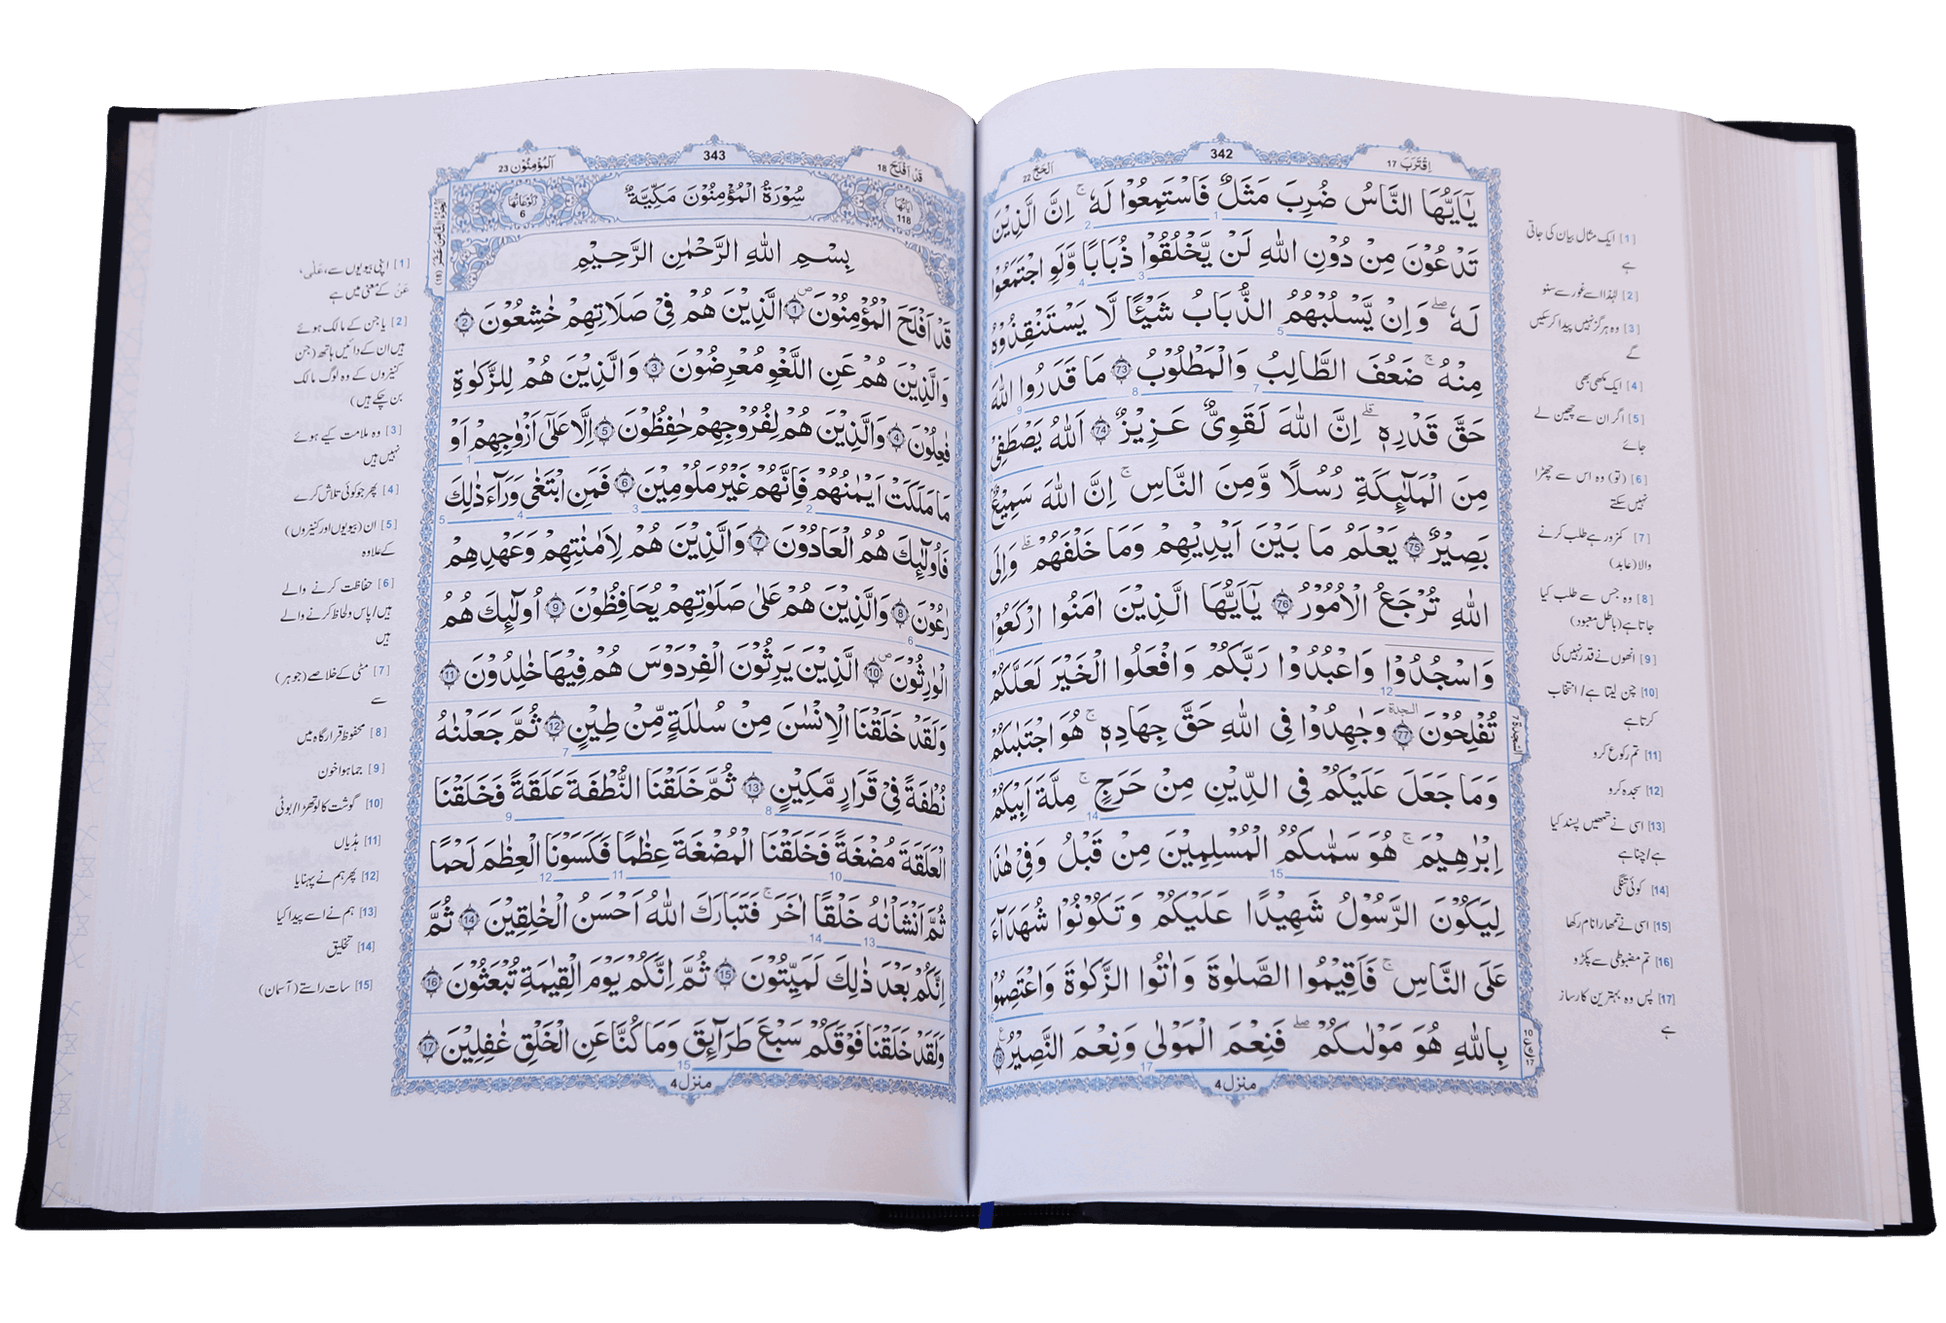 اَلْحَجّ 22
342
اِقْتَرَبَ 17
يٰۤاَيُّهَا النَّاسُ ضُرِبَ مَثَلٌ فَاسْتَمِعُوْا لَهٗ ۚ اِنَّ الَّذِيْنَ
تَدْعُوْنَ مِنْ دُوْنِ اللّٰهِ لَنْ يَّخْلُقُوْا ذُبَابًا وَّلَوِ اجْتَمَعُوْا
لَهٗ ۖ وَاِنْ يَّسْلُبْهُمُ الذُّبَابُ شَيْـًٔا لَّا يَسْتَنْقِذُوْهُ
مِنْهُ ۚ ضَعُفَ الطَّالِبُ وَالْمَطْلُوْبُ 73 مَا قَدَرُوا اللّٰهَ
حَقَّ قَدْرِهٖ ۗ اِنَّ اللّٰهَ لَقَوِىٌّ عَزِيْزٌ 74 اَللّٰهُ يَصْطَفِىْ
مِنَ الْمَلٰٓئِكَةِ رُسُلًا وَّمِنَ النَّاسِ ۚ اِنَّ اللّٰهَ سَمِيْعٌۢ
بَصِيْرٌ 75 يَعْلَمُ مَا بَيْنَ اَيْدِيْهِمْ وَمَا خَلْفَهُمْ ۗ وَاِلَى
اللّٰهِ تُرْجَعُ الْاُمُوْرُ 76 يٰۤاَيُّهَا الَّذِيْنَ اٰمَنُوا ارْكَعُوْا
وَاسْجُدُوْا وَاعْبُدُوْا رَبَّكُمْ وَافْعَلُوا الْخَيْرَ لَعَلَّكُمْ
تُفْلِحُوْنَ 77 السجدة وَجٰهِدُوْا فِى اللّٰهِ حَقَّ جِهَادِهٖ ۚ هُوَ اجْتَبٰىكُمْ
وَمَا جَعَلَ عَلَيْكُمْ فِى الدِّيْنِ مِنْ حَرَجٍ ۚ مِلَّةَ اَبِيْكُمْ
اِبْرٰهِيْمَ ۚ هُوَ سَمّٰىكُمُ الْمُسْلِمِيْنَ مِنْ قَبْلُ وَفِىْ هٰذَا
لِيَكُوْنَ الرَّسُوْلُ شَهِيْدًا عَلَيْكُمْ وَتَكُوْنُوْا شُهَدَآءَ
عَلَى النَّاسِ ۚ فَاَقِيْمُوا الصَّلٰوةَ وَاٰتُوا الزَّكٰوةَ وَاعْتَصِمُوْا
بِاللّٰهِ هُوَ مَوْلٰىكُمْ ۖ فَنِعْمَ الْمَوْلٰى وَنِعْمَ النَّصِيْرُ 78
منزل 4
[1] ایک مثال بیان کی جاتی
ہے
[2] لہٰذا اسے غور سے سنو
[3] وہ ہرگز نہیں پیدا کرسکیں
گے
[4] ایک مکھی بھی
[5] اگر ان سے چھین لے
جائے
[6] (تو) وہ اس سے چھڑا
نہیں سکتے
[7] کمزور ہے طلب کرنے
والا (عابد)
[8] وہ جس سے طلب کیا
جاتا ہے (باطل معبود)
[9] انھوں نے قدر نہیں کی
[10] چن لیتا ہے / انتخاب
کرتا ہے
[11] تم رکوع کرو
[12] سجدہ کرو
[13] اسی نے تمھیں پسند کیا
ہے / چنا ہے
[14] کوئی تنگی
[15] اسی نے تمھارا نام رکھا
[16] تم مضبوطی سے پکڑو
[17] پس وہ بہترین کارساز
ہے
اَلْمُؤْمِنُوْن 23
343
قَدْ اَفْلَحَ 18
اٰيَاتُهَا 118
سُوْرَةُ الْمُؤْمِنُوْنَ مَكِّيَّةٌ
رُكُوْعَاتُهَا 6
بِسْمِ اللّٰهِ الرَّحْمٰنِ الرَّحِيْمِ
قَدْ اَفْلَحَ الْمُؤْمِنُوْنَ 1 الَّذِيْنَ هُمْ فِىْ صَلَاتِهِمْ خٰشِعُوْنَ 2
وَالَّذِيْنَ هُمْ عَنِ اللَّغْوِ مُعْرِضُوْنَ 3 وَالَّذِيْنَ هُمْ لِلزَّكٰوةِ
فٰعِلُوْنَ 4 وَالَّذِيْنَ هُمْ لِفُرُوْجِهِمْ حٰفِظُوْنَ 5 اِلَّا عَلٰٓى اَزْوَاجِهِمْ اَوْ
مَا مَلَكَتْ اَيْمٰنُهُمْ فَاِنَّهُمْ غَيْرُ مَلُوْمِيْنَ 6 فَمَنِ ابْتَغٰى وَرَآءَ ذٰلِكَ
فَاُولٰٓئِكَ هُمُ الْعَادُوْنَ 7 وَالَّذِيْنَ هُمْ لِاَمٰنٰتِهِمْ وَعَهْدِهِمْ
رٰعُوْنَ 8 وَالَّذِيْنَ هُمْ عَلٰى صَلَوٰتِهِمْ يُحَافِظُوْنَ 9 اُولٰٓئِكَ هُمُ
الْوٰرِثُوْنَ 10 الَّذِيْنَ يَرِثُوْنَ الْفِرْدَوْسَ هُمْ فِيْهَا خٰلِدُوْنَ 11
وَلَقَدْ خَلَقْنَا الْاِنْسٰنَ مِنْ سُلٰلَةٍ مِّنْ طِيْنٍ 12 ثُمَّ جَعَلْنٰهُ
نُطْفَةً فِىْ قَرَارٍ مَّكِيْنٍ 13 ثُمَّ خَلَقْنَا النُّطْفَةَ عَلَقَةً فَخَلَقْنَا
الْعَلَقَةَ مُضْغَةً فَخَلَقْنَا الْمُضْغَةَ عِظٰمًا فَكَسَوْنَا الْعِظٰمَ لَحْمًا
ثُمَّ اَنْشَاْنٰهُ خَلْقًا اٰخَرَ ۚ فَتَبَارَكَ اللّٰهُ اَحْسَنُ الْخٰلِقِيْنَ 14 ثُمَّ
اِنَّكُمْ بَعْدَ ذٰلِكَ لَمَيِّتُوْنَ 15 ثُمَّ اِنَّكُمْ يَوْمَ الْقِيٰمَةِ تُبْعَثُوْنَ 16
وَلَقَدْ خَلَقْنَا فَوْقَكُمْ سَبْعَ طَرَآئِقَ وَمَا كُنَّا عَنِ الْخَلْقِ غٰفِلِيْنَ 17
منزل 4
[1] اپنی بیویوں سے، عَلٰی،
عَنْ کے معنی میں ہے
[2] یا جن کے مالک ہوئے
ہیں ان کے دائیں ہاتھ (جن
کنیزوں کے وہ لوگ مالک
بن چکے ہیں)
[3] وہ ملامت کیے ہوئے
نہیں ہیں
[4] پھر جو کوئی تلاش کرے
[5] ان (بیویوں اور کنیزوں)
کے علاوہ
[6] حفاظت کرنے والے
ہیں / پاس ولحاظ کرنے والے
ہیں
[7] مٹی کے خلاصے (جوہر)
سے
[8] محفوظ قرار گاہ میں
[9] جما ہوا خون
[10] گوشت کا لوتھڑا / بوٹی
[11] ہڈیاں
[12] پھر ہم نے پہنایا
[13] ہم نے اسے پیدا کیا
[14] تخلیق
[15] سات راستے (آسمان)